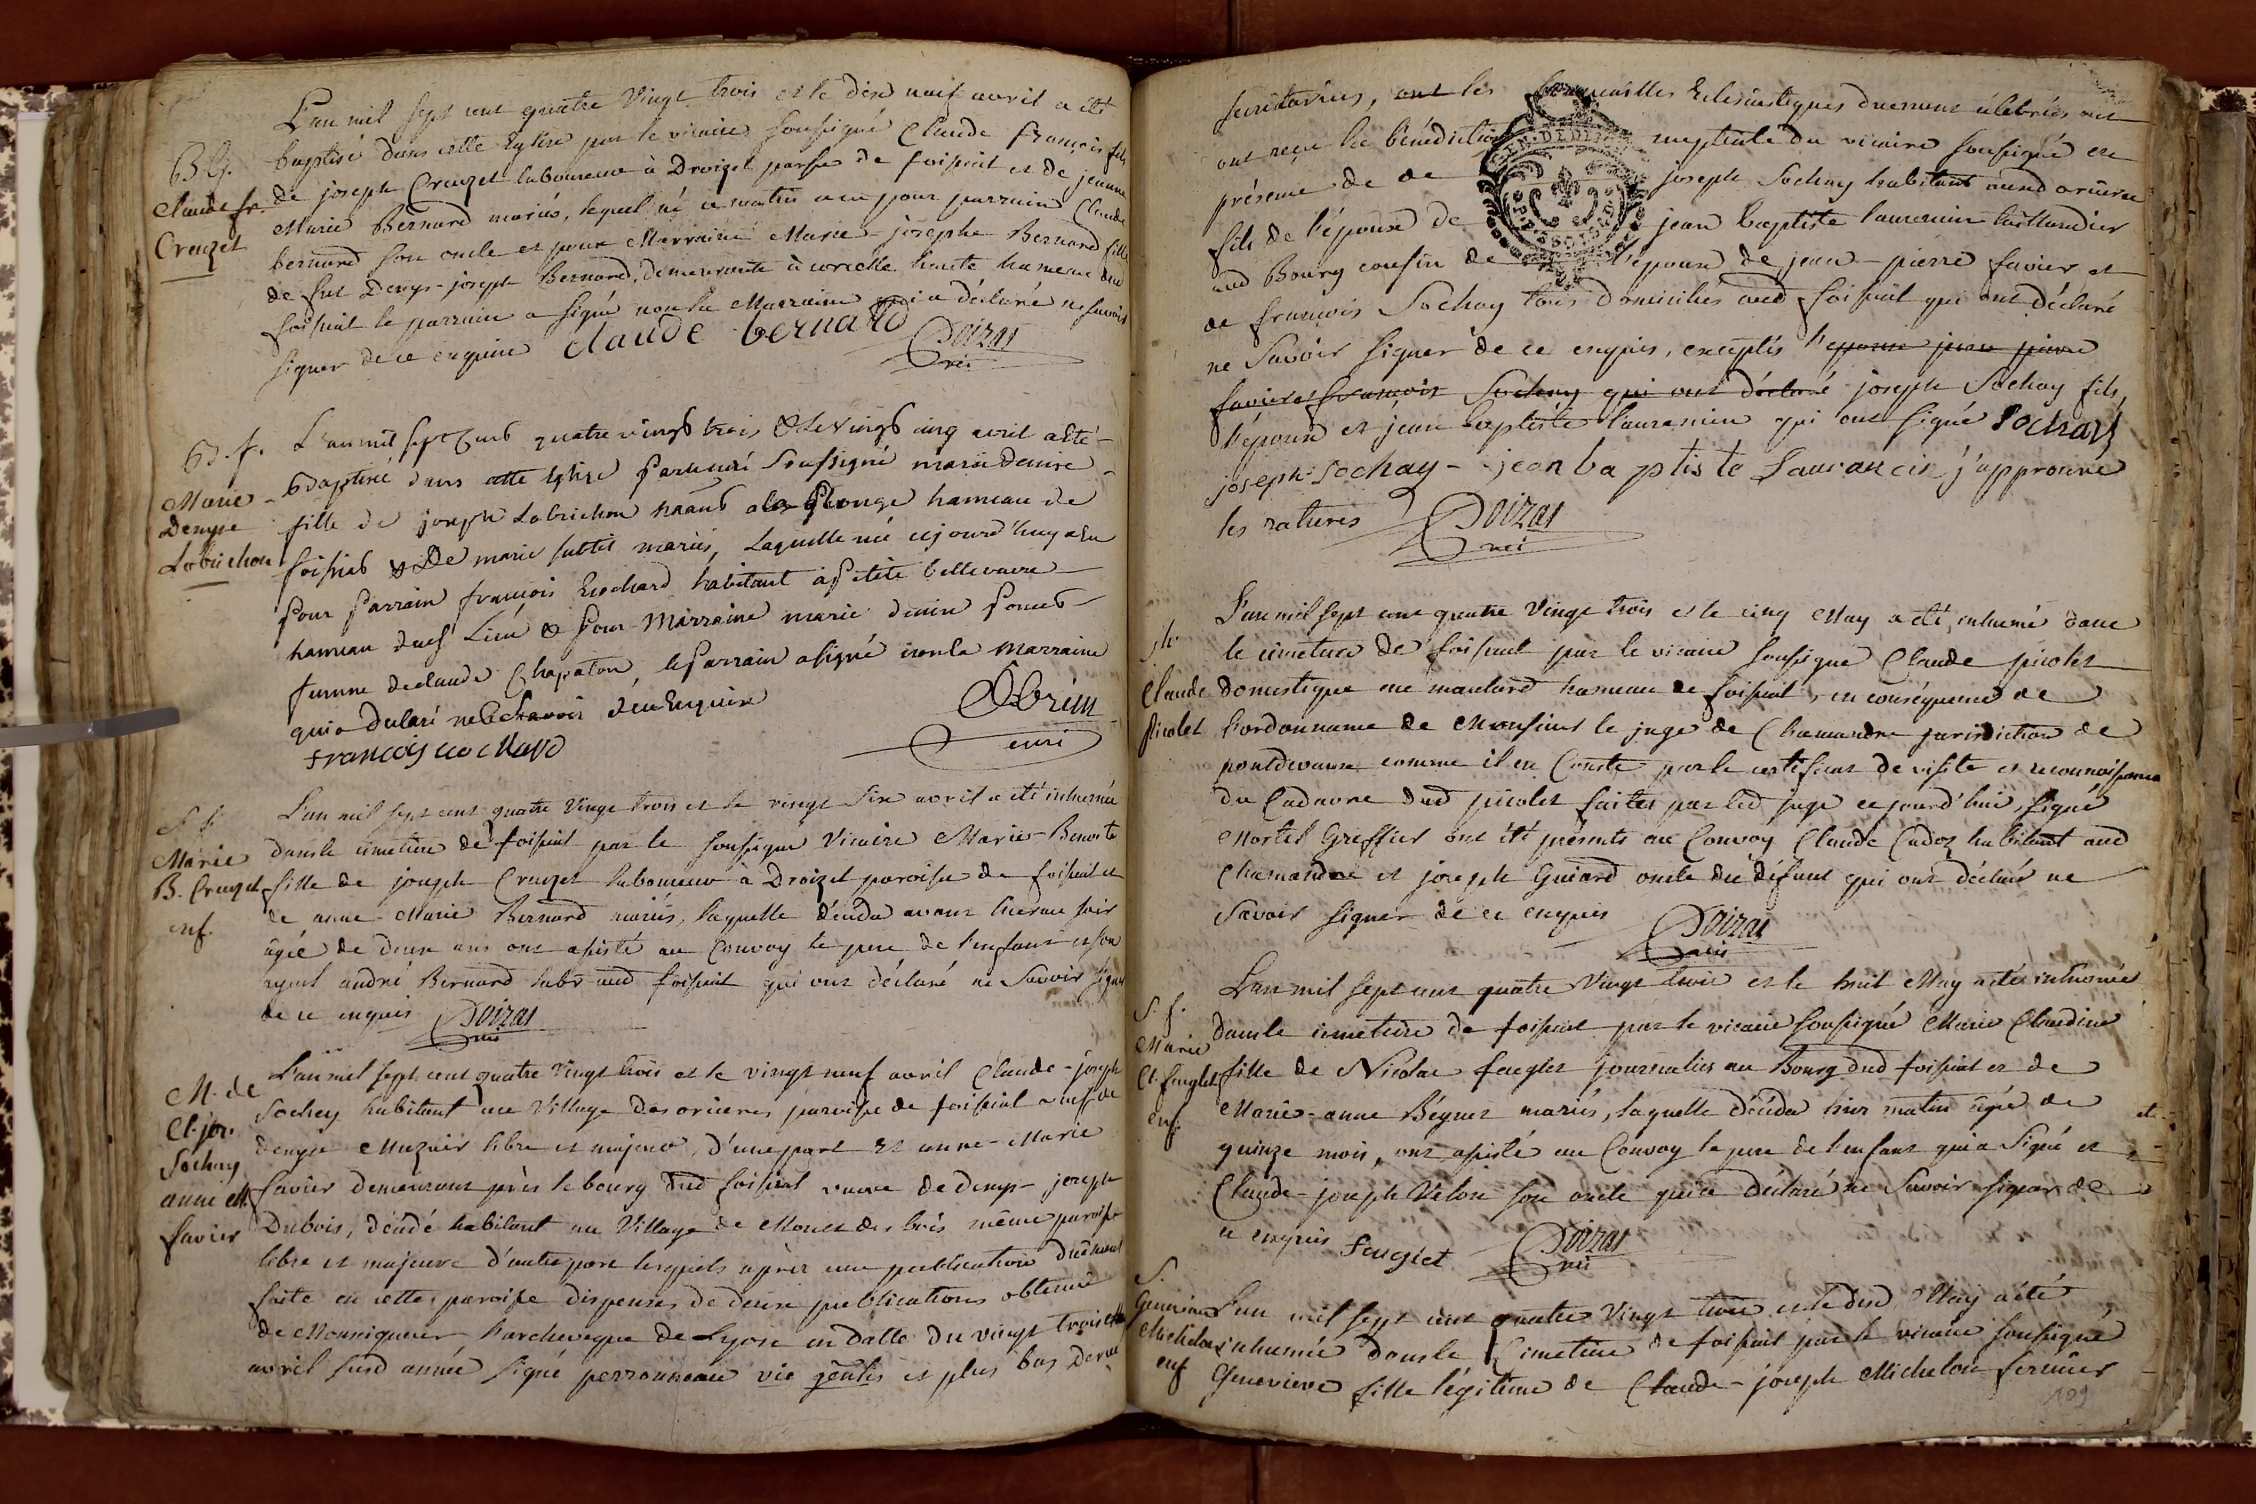 L'an mil sept cent quatre vingt trois et le dixe neuf avril a eté
baptisé dans cette Eglise par le vicaire soussigné Claude françois fils
de joseph Creuzet laboureur à Droizet parsse de foissiat et de jeanne
Marie Bernard mariés, lequel né ce matin a eu pour parrain Claude
bernard son oncle et pour Marraine Marie-josephe Bernard fille
de fut Denys-joseph Bernard, demeurante à corcelle haute hameau dud
foissiat le parrain a signé non la Marraine qui a déclaré ne savoir
signer de ce enquise claude bernard Doizat
vic
B. f.
Claude fr.
Creuzet
L'an mil sept Cent quatre vingt trois & le vingt cinq avril a été
Baptisée dans cette Eglise par le curé soussigné marie denise
fille de joseph Labrichon hant a la plonge hameau de
foissiat & De marie subtil mariés, Laquelle née cejourd'huy a eu
pour parrain françois Cochard habitant à petite bellevavre
hameau dud Lieu & pour Marraine marie denise poncet
femme de claude Chapaton, le parrain a signé non la marraine
qui a declaré ne sçavoir d'en Enquise
françois cochard
curé
Bd. f.
Marie
Denyse
Labrichon
L'an mil sept cent quatre vingt trois et le vingt six avril a eté inhumée
dans le cimetiere de foissiat par le soussigné vicaire Marie-Benoite
fille de joseph Creuzet laboureur à Droizet paroisse de foissiat et
de anne-Marie Bernard mariés, laquelle décéda avant hier au soir
agée de deux ans ont assisté au Convoy le pere de l'enfant et son
ayeul andré Bernard labr aud foissiat qui ont déclaré ne savoir signer
de ce enquis Doizat
vic
S. f.
Marie
B. Creuzet
enf.
L'an mil sept cent quatre vingt trois et le vingt neuf avril Claude-joseph
Sochay habitant au village des orieres paroisse de foissiat veuf de
denyse Mazuir libre et majeur, d'une part et anne-Marie
favier demeurant près le bourg dud foissiat veuve de denys-joseph
Dubois, décédé habitant au village de Monet des bois même paroisse
libre et majeure d'autre part lesquels après une publication duëment
faite en cette paroisse dispenses de deux publications obtenue
de Monseigneur l'archeveque de Lyon en datte du vingt trois
avril susd année signé perronneau vic génlis et plus bas
M. de
Cl. jos.
Sochay
anne M.
favier
secretaries, les ecclesiastiques duement célebrées
ont reçu la bénédiction nuptiale du vicaire soussigné en
présence de joseph Sochay habitant aud orieres
fils de l'époux de jean baptiste laurencin taillandier
aud Bourg cousin de l'époux de jean-pierre favier et
de françois Sochay tous domiciliés aud foissiat qui ont déclaré
ne savoir signer de ce enquis, exceptés l'epouse jean pierre
favier et françois Sochay qui ont déclaré joseph Sochay fils
l'époux et jean baptiste laurencin qui ont signé Sochay
joseph Sochay - jean baptiste Laurancin j'approuve
les ratures Doizat
vic
L'an mil sept cent quatre vingt trois et le cinq May a eté inhumé dans
le cimetiere de foissiat par le vicaire soussigné Claude picolet
Domestique au montard hameau de foissiat, en conséquence de
l'ordonnance de Monsieur le juge de Chamandre jurisdiction de
pontdevaux comme il en Conste par le certificat de visite et reconnoissance
du Cadavre dud picolet faites par led juge ce jourd'hui, signé
Mortel Greffier ont été présents au Convoy Claude Cadoz habitant aud
Chamandre et joseph Guiard oncle du défunt qui ont déclaré ne
savoir signer de ce enquis Doizat
vic
Claude
Picolet
L'an mil sept cent quatre vingt trois et le huit May a été inhumée
dans le cimetiere de foissiat par le vicaire soussigné Marie Claudine
fille de Nicolas feuglet journalier au Bourg dud foissiat et de
Marie-anne Béguet mariés, laquelle décéda hier matin agée de
quinze mois, ont assisté au Convoy le pere de l'enfant qui a signé et
Claude-joseph Velon son oncle qui a déclaré ne savoir signer de
ce enquis feuglet Doizat
vic
S. f.
Marie
Cl. feuglet
enf.
L'an mil sept cent quatre vingt trois et le dixe May a été
inhumée dans le Cimetiere de foissiat par le vicaire soussigné
Genevieve fille légitime de Claude-joseph Michelon fermier
S.
Genevieve
Michelon
enf
109